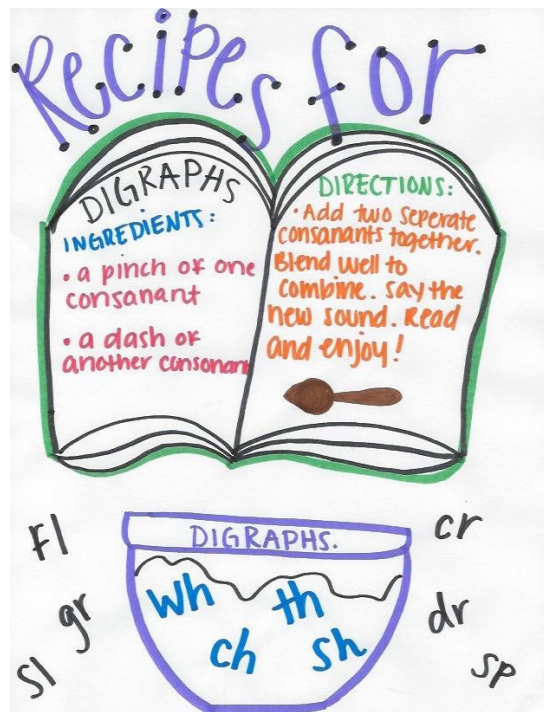 Recipes for
DIGRAPHS
INGREDIENTS:
• a pinch of one
consanant
• a dash of
another consonant
DIRECTIONS:
• Add two seperate
consanants together.
Blend well to
combine. say the
new sound. Read
and enjoy!
DIGRAPHS.
wh th
ch sh
Fl
gr
sl
cr
dr
sp